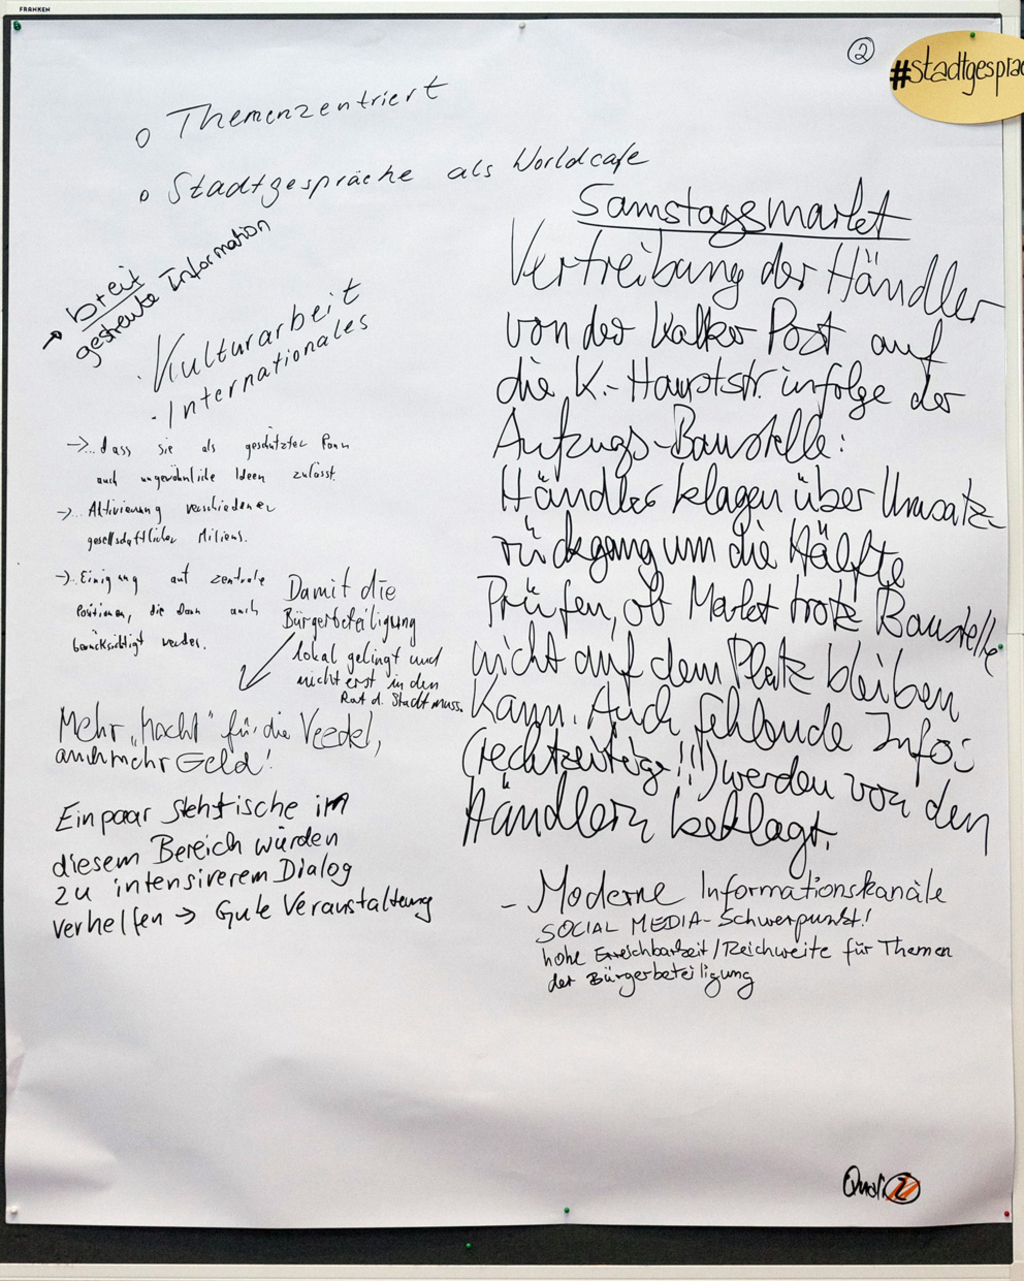 FRANKEN
②
#stadtgespräc
o Themenzentriert
o Stadtgespräche als Worldcafe
→ breit
gestreute Information
· Kulturarbeit
· Internationales
→... dass sie als geschützter Raum
auch ungewöhnliche Ideen zulässt.
→... Aktivierung verschiedener
gesellschaftlicher Milieus.
→... Einigung auf zentrale
Positionen, die dann auch
berücksichtigt werden.
Damit die
Bürgerbeteiligung
lokal gelingt und
nicht erst in den
Rat d. Stadt muss.
Mehr „Macht" für die Veedel,
auch mehr Geld!
Ein paar Stehtische in
diesem Bereich würden
zu intensiverem Dialog
verhelfen → Gute Veranstaltung
Samstagsmarkt
Vertreibung der Händler
von der Kalker Post auf
die K.-Hauptstr. infolge der
Aufzugs-Baustelle:
Händler klagen über Umsatz-
rückgang um die Hälfte
Prüfen, ob Markt trotz Baustelle
nicht auf dem Platz bleiben
kann. Auch fehlende Infos
(rechtzeitige!!!) werden von den
Händlern beklagt.
- Moderne Informationskanäle
SOCIAL MEDIA - Schwerpunkt!
hohe Erreichbarkeit/Reichweite für Themen
der Bürgerbeteiligung